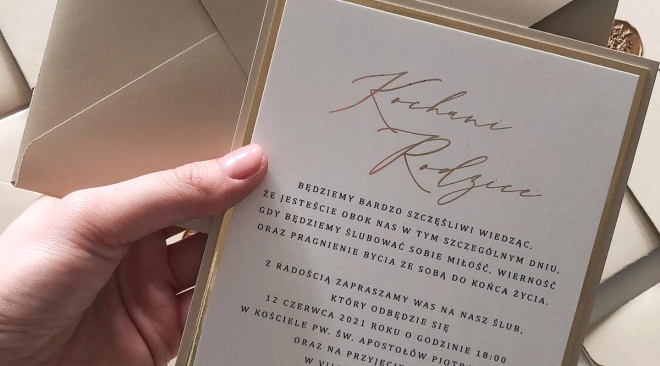 Kochani
Rodzice
BĘDZIEMY BARDZO SZCZĘŚLIWI WIEDZĄC,
ŻE JESTEŚCIE OBOK NAS W TYM SZCZEGÓLNYM DNIU,
GDY BĘDZIEMY ŚLUBOWAĆ SOBIE MIŁOŚĆ, WIERNOŚĆ
ORAZ PRAGNIENIE BYCIA ZE SOBĄ DO KOŃCA ŻYCIA.
Z RADOŚCIĄ ZAPRASZAMY WAS NA NASZ ŚLUB,
KTÓRY ODBĘDZIE SIĘ
12 CZERWCA 2021 ROKU O GODZINIE 18:00
W KOŚCIELE PW. ŚW. APOSTOŁÓW
ORAZ NA